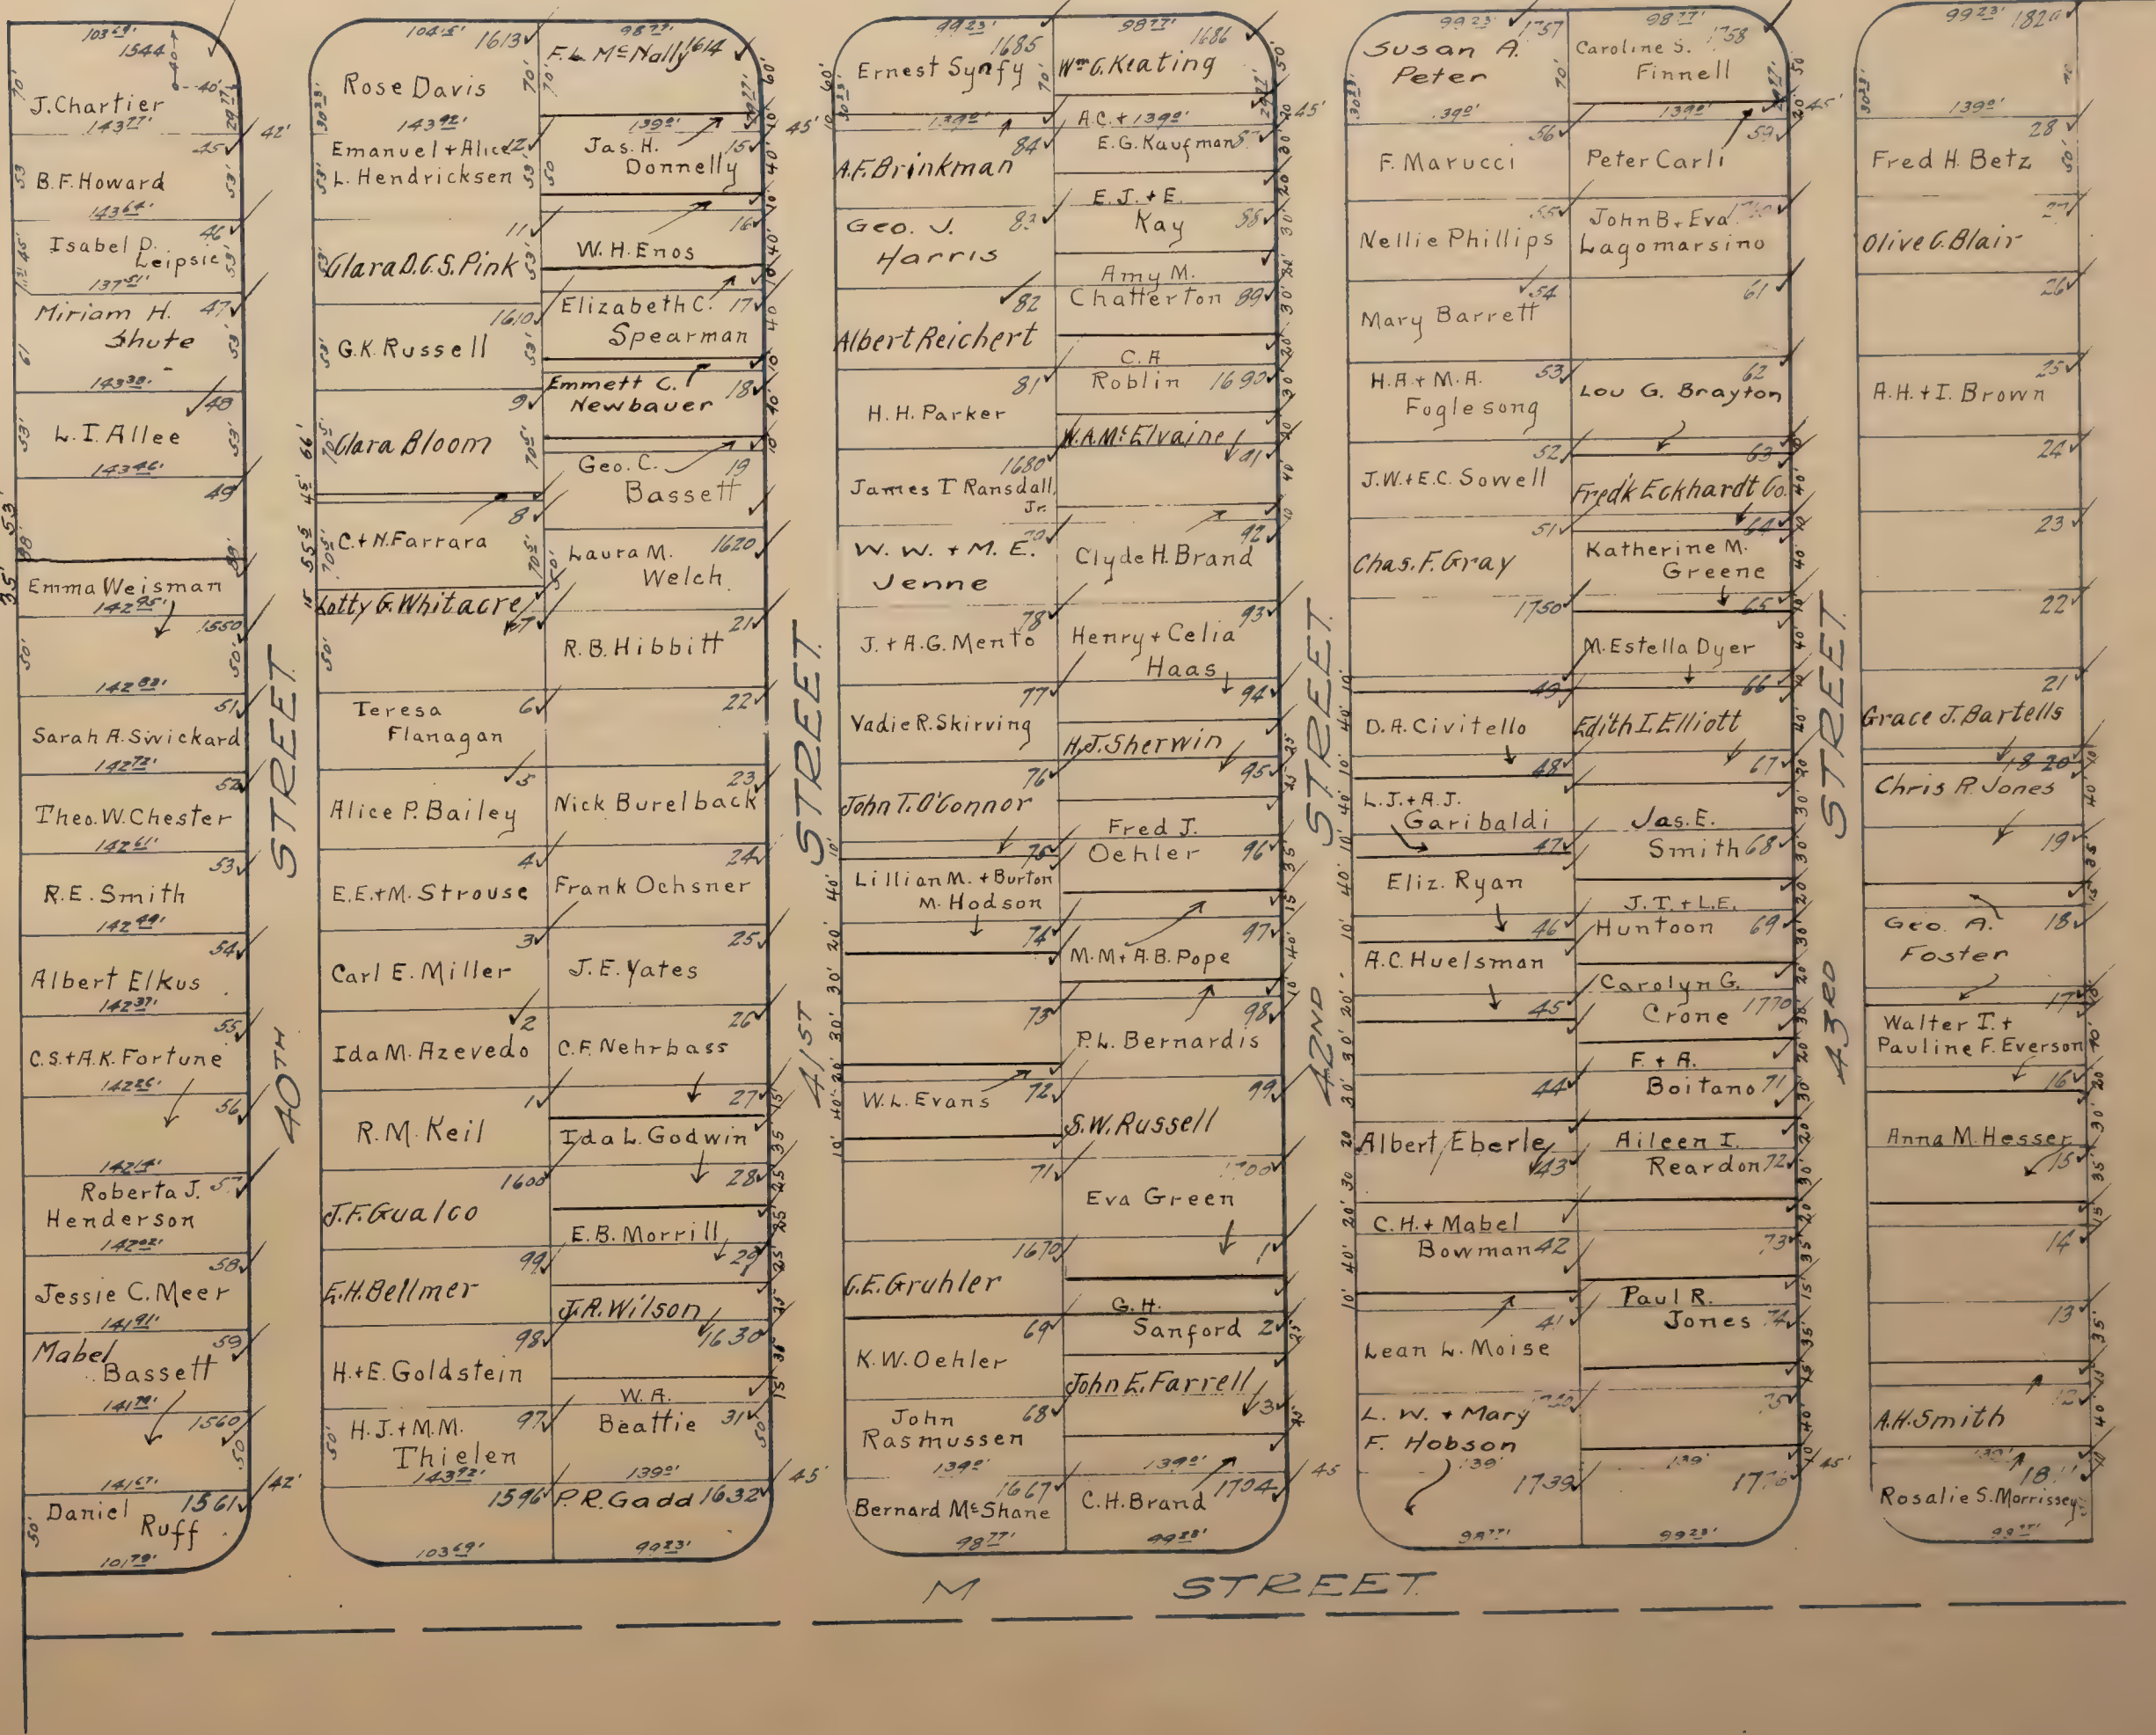 103 69'
1544
40
40'
70'
J. Chartier
143 77'
42'
45
53'
53'
B.F. Howard
143 64'
46
Isabel D.
Leipsic
53'
137 51'
Miriam H.
Shute
47
53'
61
143 38'
48
L. I. Allee
53'
53'
143 46'
49
88'
88'
53'
35'
Emma Weisman
142 95'
1550
50'
50'
142 83'
51
Sarah A. Swickard
142 72'
52
Theo. W. Chester
142 61'
53
R.E. Smith
142 49'
54
Albert Elkus
142 37'
55
C.S. + A.K. Fortune
142 26'
56
142 14'
Roberta J.
57
Henderson
142 02'
58
Jessie C. Meer
141 91'
59
Mabel
Bassett
141 79'
1560
50'
141 67'
42'
Daniel
Ruff
1561
50'
101 79'
40TH STREET
104 15'
1613
Rose Davis
70'
30 23'
143 92'
Emanuel + Alice
L. Hendricksen
12
53'
53'
11
Clara D.C.S. Pink
53'
53'
1610
G.K. Russell
53'
53'
9
Clara Bloom
70 5'
70 5'
66'
45'
8
C. + N. Farrara
70 5'
70 5'
55 5
15'
Lotty G. Whitacre
7
50'
6
Teresa
Flanagan
5
Alice P. Bailey
4
E.E. + M. Strouse
3
Carl E. Miller
2
Ida M. Azevedo
1
R. M. Keil
1600
J.F. Gualco
99
E.H. Bellmer
98
H. + E. Goldstein
97
H. J. + M.M.
Thielen
50'
143 92'
1596
103 69'
98 77'
F. L. McNally
1614
70'
60'
10'
139 0'
45'
Jas. H.
Donnelly
15
50
40'
10'
16
W. H. Enos
40'
10'
Elizabeth C.
Spearman
17
40'
10'
Emmett C.
Newbauer
18
40'
10'
Geo. C.
Bassett
19
Laura M.
Welch
1620
50'
R. B. Hibbitt
21
22
23
Nick Burelback
24
Frank Ochsner
25
J. E. Yates
26
C.F. Nehrbass
27
15'
Ida L. Godwin
35'
28
25'
E. B. Morrill
25'
29
25'
J.A. Wilson
1630
35'
15'
W. A.
Beattie
31
50'
139 0'
45'
P. R. Gadd
1632
99 23'
41ST STREET
99 23'
1685
Ernest Synfy
70'
60'
30 23'
10
139 0'
84
A.F. Brinkman
83
Geo. J.
Harris
82
Albert Reichert
81
H. H. Parker
1680
James T Ransdall,
Jr.
W. W. + M. E.
Jenne
78
J. + A.G. Mento
77
Vadie R. Skirving
76
John T. O'Connor
10'
75
Lillian M. + Burton
M. Hodson
40'
74
20'
30'
73
30'
20'
W. L. Evans
72
40'
10'
71
1670
C.E. Gruhler
69
K.W. Oehler
68
John
Rasmussen
139 0'
1667
Bernard McShane
98 77'
98 77'
1686
Wm. G. Keating
50'
20'
45'
A.C. + 139 0'
E.G. Kaufman
87
30'
20'
E. J. + E.
Kay
88
30'
20'
Amy M.
Chatterton
89
30'
20'
C. A
Roblin
1690
30'
20'
W.A. McElvaine
91
40'
10'
Clyde H. Brand
92
93
Henry + Celia
Haas
94
25'
H.J. Sherwin
95
15'
Fred J.
Oehler
96
35'
15'
97
M. M + A. B. Pope
40'
10'
98
P.L. Bernardis
99
S.W. Russell
1700
Eva Green
1
G. H.
Sanford
2
25'
John E. Farrell
3
139 0'
45
C.H. Brand
1704
99 23'
42ND STREET
99 23'
1757
Susan A.
Peter
70'
30 23'
139 0'
56
F. Marucci
55
Nellie Phillips
54
Mary Barrett
53
H. A + M. A.
Foglesong
52
J.W. + E.C. Sowell
51
Chas. F. Gray
1750
10'
49
D. A. Civitello
40'
10'
48
L. J. + A. J.
Garibaldi
40'
10'
47
Eliz. Ryan
40'
10'
46
A.C. Huelsman
20'
45
30'
44
30'
20
Albert Eberle
43
30
20'
C. H. + Mabel
Bowman
42
40'
10'
41
Lean L. Moise
L. W. + Mary
F. Hobson
139'
1739
98 77'
98 77'
1758
Caroline S.
Finnell
50'
20'
45'
139 0'
59
Peter Carli
John B + Eva
Lagomarsino
61
62
Lou G. Brayton
10'
63
Fred'k Eckhardt Co.
40'
10
64
Katherine M.
Greene
40'
10'
65
M. Estella Dyer
40'
66
Edith I. Elliott
40'
67
20'
Jas. E.
Smith
68
30'
30'
20'
J. T. + L.E.
Huntoon
69
30'
20'
Carolyn G.
Crone
1770
30'
20'
F. + A.
Boitano
71
30'
20'
Aileen I.
Reardon
72
30'
20'
73
35'
15'
Paul R.
Jones
74
35'
15'
75
40'
10
139'
45'
1776
99 23'
43RD STREET
99 23'
1829
30 23'
139 0'
28
Fred H. Betz
50'
27
Olive C. Blair
26
25
A. H. + I. Brown
24
23
22
21
Grace J. Bartells
10'
1820
Chris R. Jones
40'
19
35
15'
Geo. A.
Foster
18
17
10'
Walter I. +
Pauline F. Everson
40'
16
20
30'
Anna M. Hesser
15
35'
15'
14
13
35'
15'
12
A.H. Smith
40'
Rosalie S. Morrissey
99 77'
M STREET